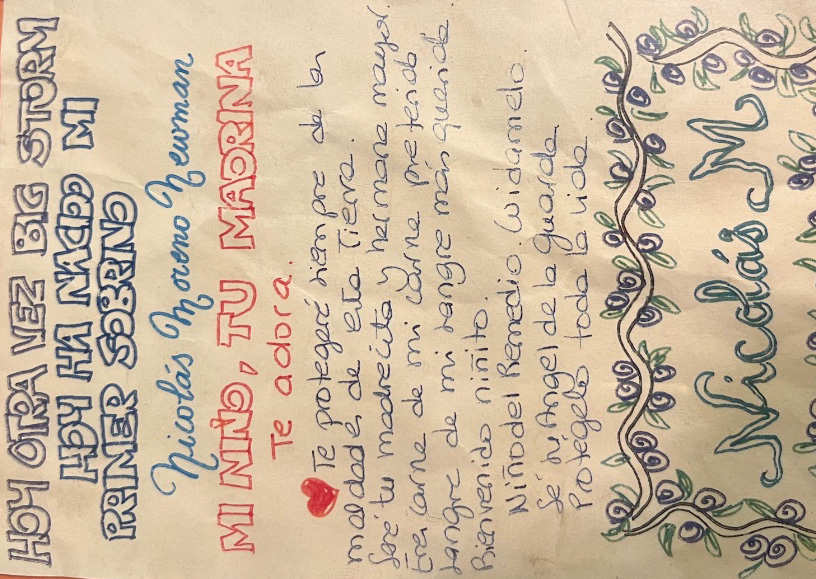 HOY OTRA VEZ BIG STORM
HOY HA NACIDO MI
PRIMER SOBRINO
Nicolás Moreno Newman
MI NIÑO, TU MADRINA
Te adora.
Te protegeré siempre de las
maldades de esta Tierra.
Seré tu madrecita y hermana mayor.
Eres carne de mi carne preferida
sangre de mi sangre más querida.
Bienvenido niñito.
Niño del Remedio. Cuidamelo.
Sé su Angel de la guarda
Protégelo toda la vida.
Nicolás M